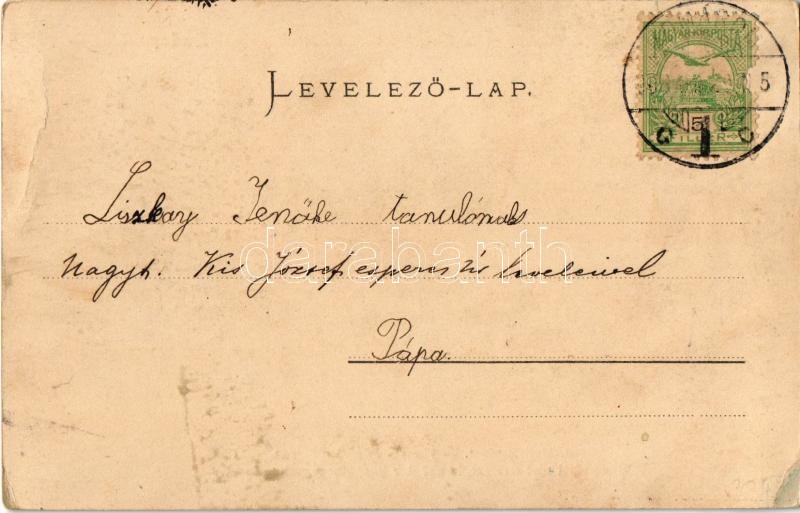 MAGYAR KIR. POSTA
5
5
FILLÉR
1
LEVELEZŐ-LAP.
Liszkay Jenőke tanulónak
Nagyt. Kis József esperes úr leveleivel
Pápa.
darabanth